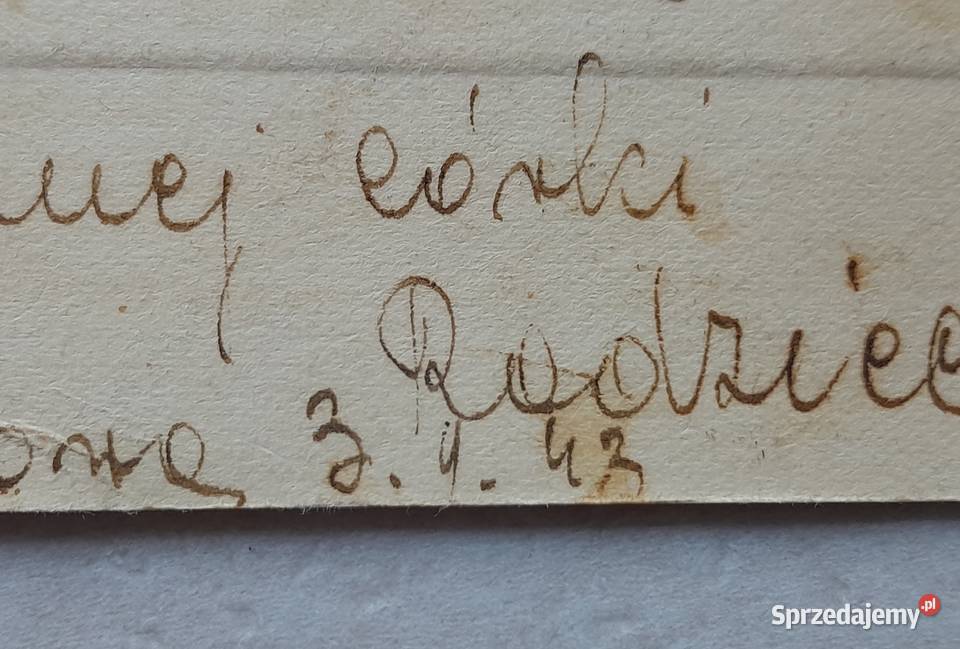 nej córki
Rodzic
3.4.43
Sprzedajemy.pl